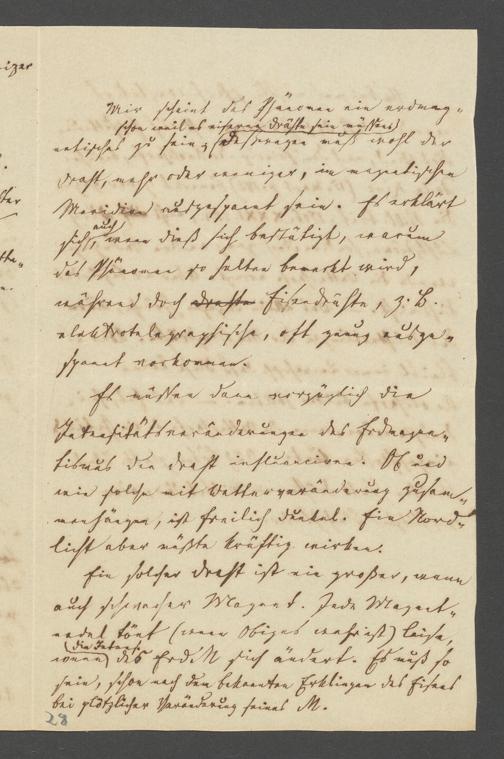 Mir scheint das Phänomen ein erdmag-
(schon weil es eiserne Drähte sein müssen)
netisches zu sein; deswegen muß wohl der
Draht, mehr oder weniger, im magnetischen
Meridian ausgespannt sein. Es erklärt
auch
sich, wenn dieß sich bestätigt, warum
das Phänomen so selten bemerkt wird,
während doch Eisendrähte, z. B.
elektrotelegraphische, oft genug ausge-
spannt vorkommen.
Es müssen dann vorzüglich die
Intensitätsveränderungen des Erdmagne-
tismus den Draht influenciren. Ob und
wie solche mit Wetterveränderung zusam-
menhängen, ist freilich dunkel. Ein Nord-
licht aber müßte kräftig wirken.
Ein solcher Draht ist ein großer, wenn
auch schwacher Magnet. Jede Magnet-
nadel tönt (wenn Obiges wahr ist) leise,
(die Intens.
wenn des Erd.M sich ändert. Es muß so
sein, schon nach dem bekannten Erklingen des Eisens
bei plötzlicher Veränderung seines M.
28